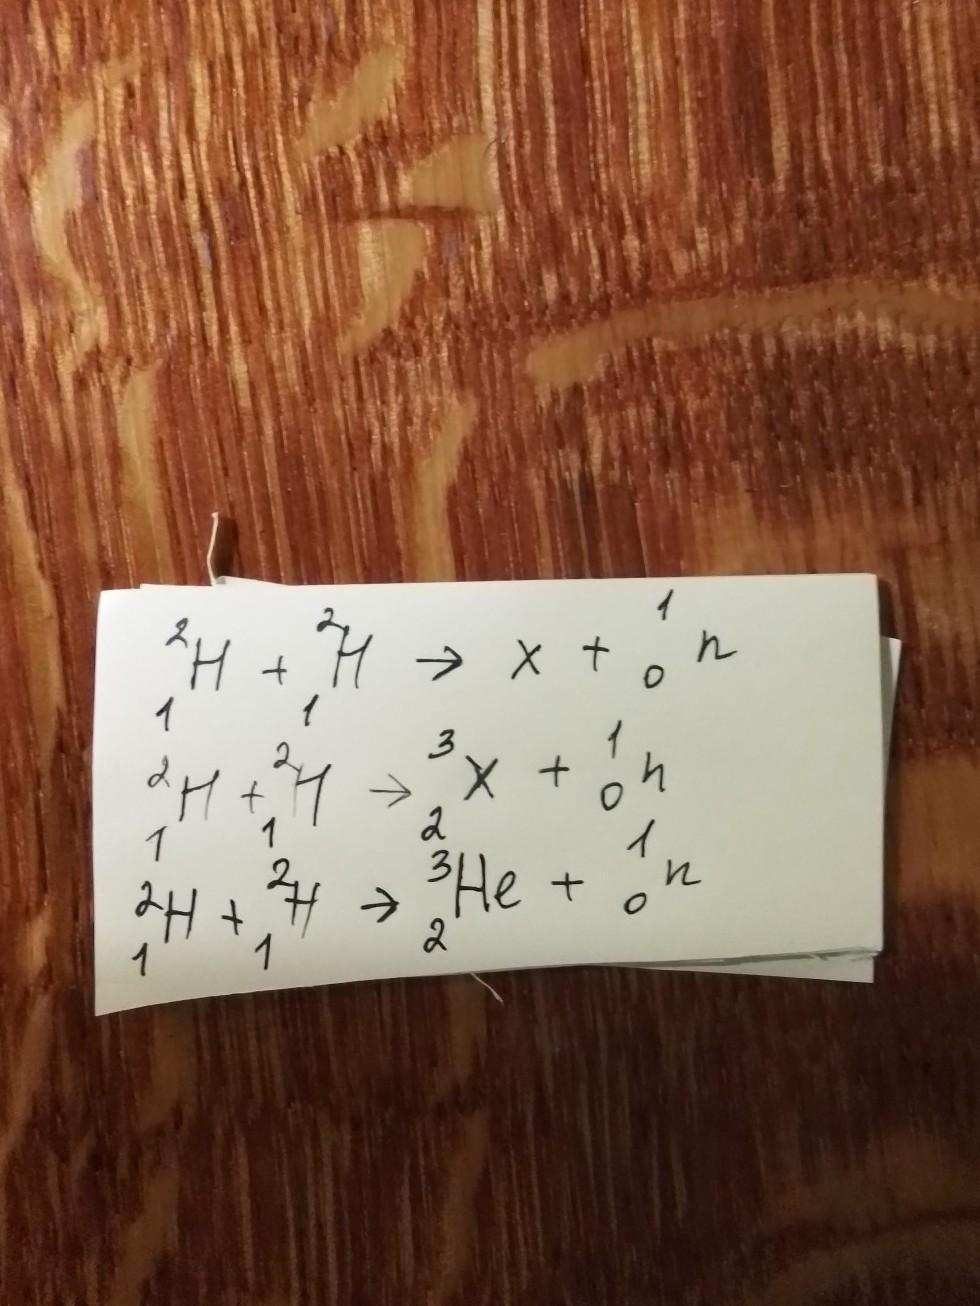 ²₁H + ²₁H → x + ¹₀n
²₁H + ²₁H → ³₂X + ¹₀n
²₁H + ²₁H → ³₂He + ¹₀n